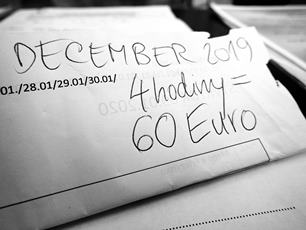 DECEMBER 2019
01./28.01/29.01/30.01/
4 hodiny =
60 Euro